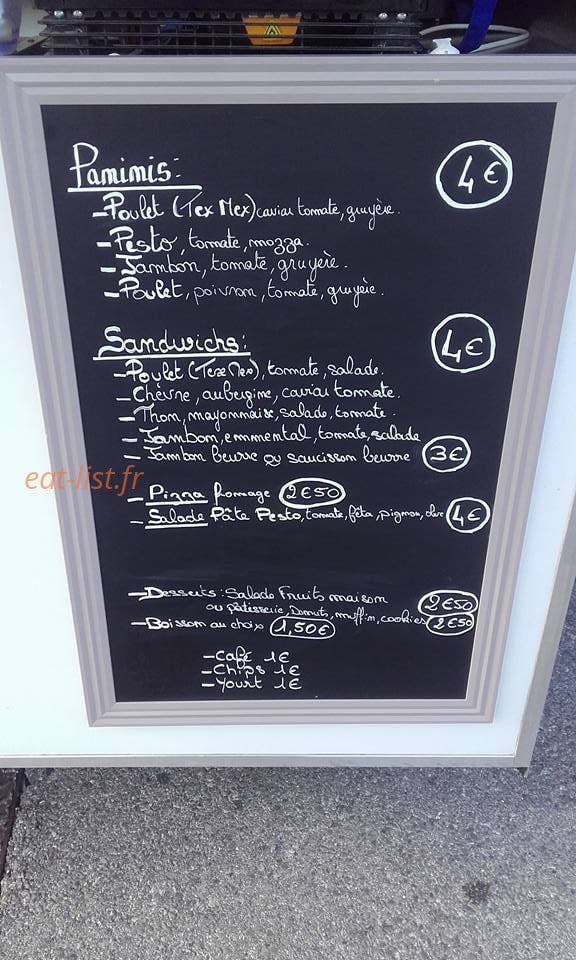 Paninis: 4€
- Poulet (Tex Mex) caviar tomate, gruyère.
- Pesto, tomate, mozza.
- Jambon, tomate, gruyère.
- Poulet, poivron, tomate, gruyère.
Sandwichs: 4€
- Poulet (Tex Mex), tomate, salade.
- Chèvre, aubergine, caviar tomate.
- Thon, mayonnaise, salade, tomate.
- Jambon, emmental, tomate, salade
- Jambon beurre ou saucisson beurre 3€
eat-list.fr
- Pizza fromage 2€50
- Salade Pâte Pesto, tomate, fêta, pignon, olive 4€
- Desserts: Salade Fruits maison 2€50
ou pâtisserie, Donuts, muffin, cookies 2€50
- Boisson au choix 1,50€
- Café 1€
- Chips 1€
- Yourt 1€